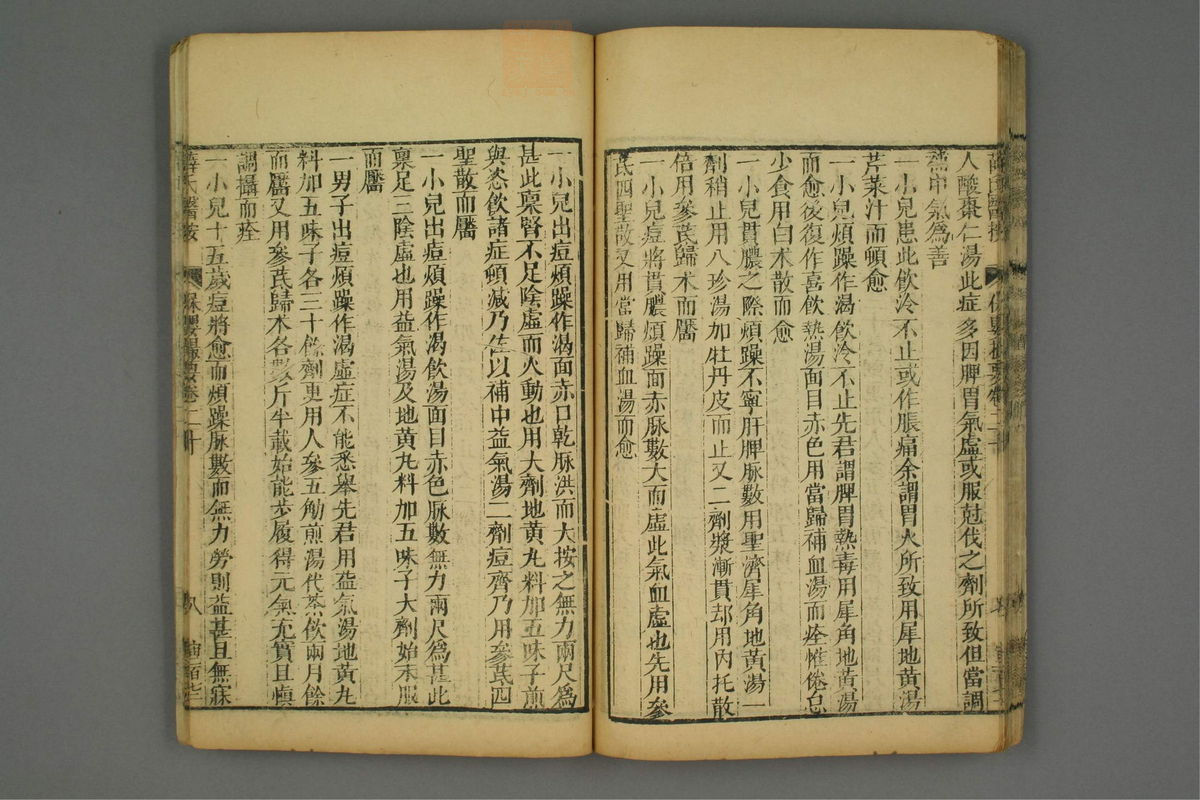 人酸棗仁湯此症多因脾胃氣虛或服尅伐之劑所致但當調
中氣爲善
一小兒患此飲冷不止或作脹痛余謂胃火所致用犀地黄湯
芹菜汁而頓愈
一小兒煩躁作渴飲冷不止先君謂脾胃熱毒用犀角地黄湯
而愈後復作喜飲熱湯面目赤色用當歸補血湯而痊惟倦怠
少食用白术散而愈
一小兒貫膿之際煩躁不寧肝脾脉數用聖濟犀角地黄湯一
劑稍止用八珍湯加牡丹皮而止又二劑漿漸貫却用內托散
倍用參芪歸术而靨
一小兒痘將貫膿煩躁面赤脉數大而虛此氣血虛也先用參
芪四聖散又用當歸補血湯而愈
一小兒出痘煩躁作渴面赤口乾脉洪而大按之無力兩尺爲
甚此稟腎不足陰虛而火動也用大劑地黄丸料加五味子煎
與恣飲諸症頓减乃佐以補中益氣湯二劑痘齊乃用參芪四
聖散而靨
一小兒出痘煩躁作渴飲湯面目赤色脉數無力兩尺爲甚此
稟足三陰虛也用益氣湯及地黄丸料加五味子大劑始末服
而靨
一男子出痘煩躁作渴虛症不能悉舉先君用益氣湯地黄丸
料加五味子各三十餘劑更用人參五觔煎湯代茶飲兩月餘
而靨又用參芪歸术各數斤半載始能步履得元氣充實且慎
調攝而痊
一小兒十五歲痘將愈而煩躁脉數而無力勞則益甚且無寐
薛氏醫按
保嬰撮要卷二十
八